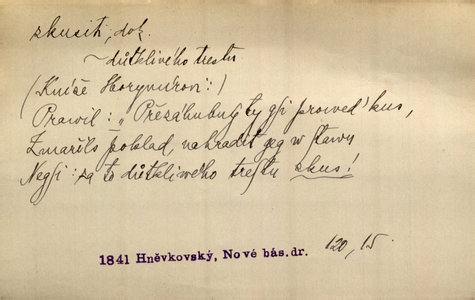 zkusiti, dok.
~ důtklivého trestu
(Kníže Horymírovi:)
Prawil: „Přezáhubný ty gsi prowed' kus,
Zmařils poklad, nahradit geg w stawu
Negsi: za to důtkliwého trestu zkus!
1841 Hněvkovský, Nové bás. dr. 120, 15.